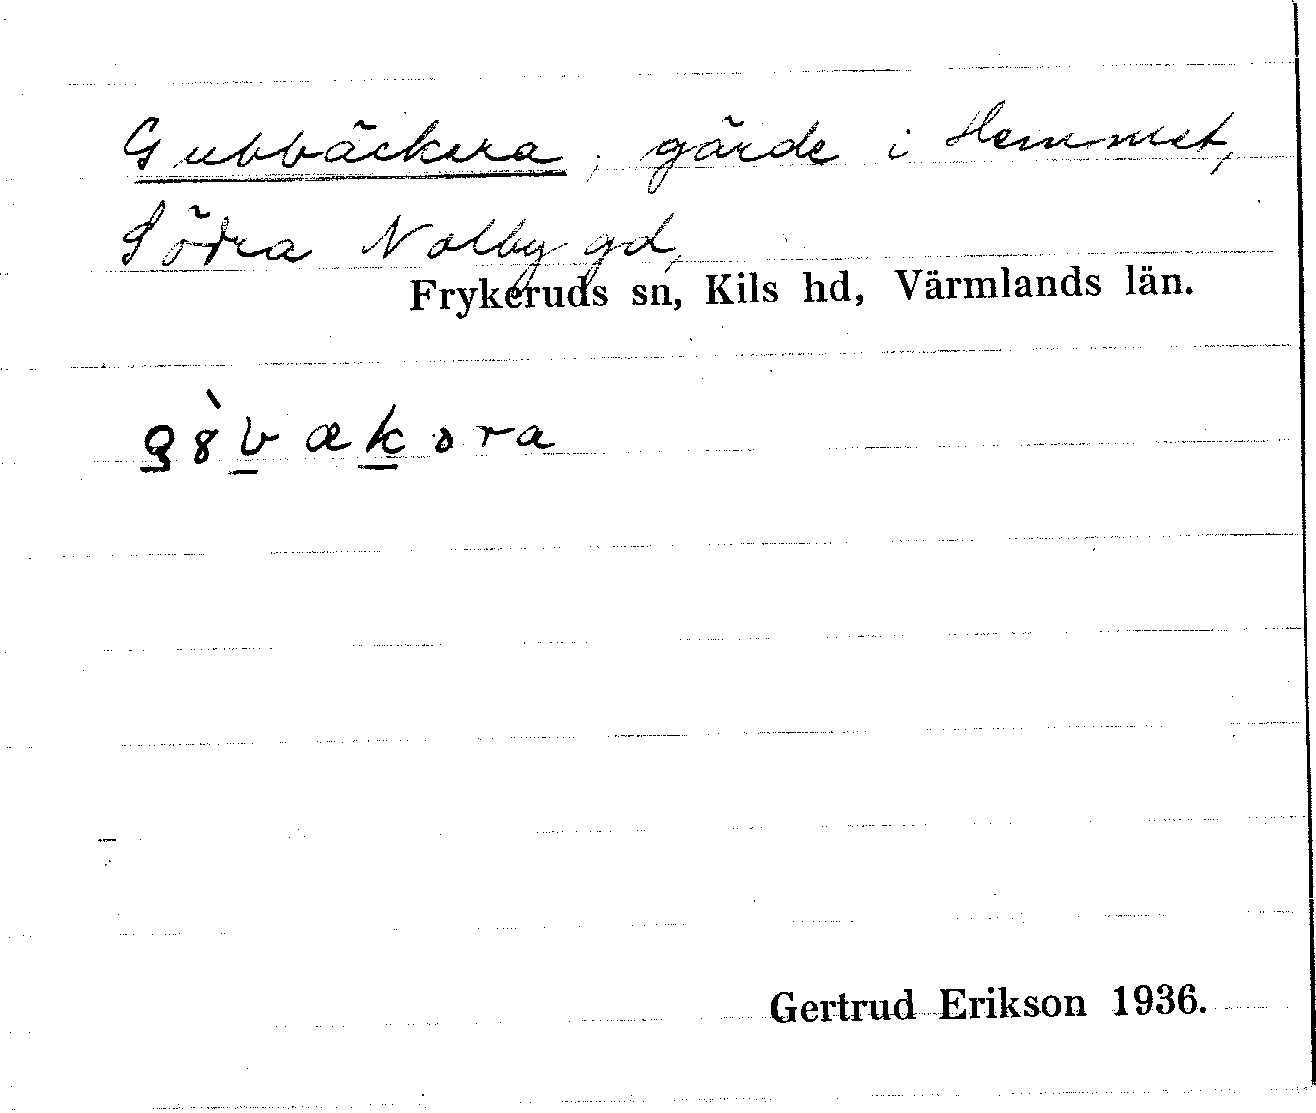 Gubbäckera, gärde i Hemmet,
Södra Nolby gd,
Frykeruds sn, Kils hd, Värmlands län.
g8̀bækəra
Gertrud Erikson 1936.